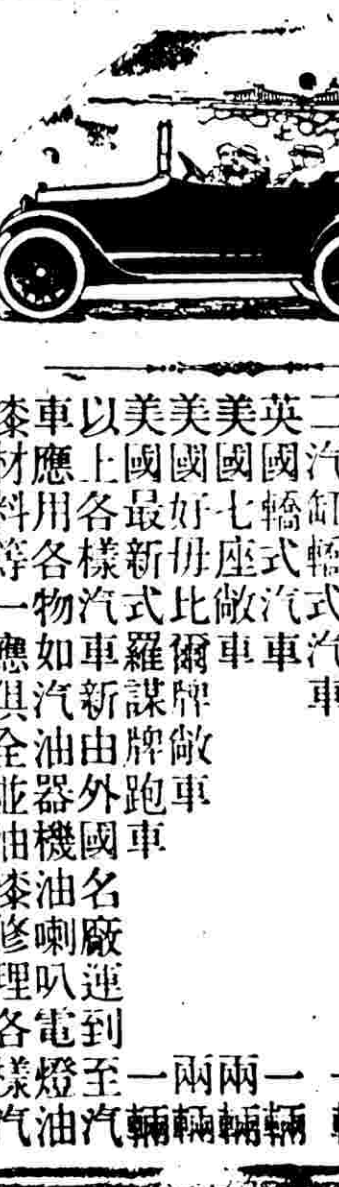 二汽缸轎式汽車
英國轎式汽車 一輛
美國七座敞車 兩輛
美國好毋比爾牌敞車 兩輛
美國最新式羅謀牌跑車 一輛
以上各樣汽車新由外國名廠運到至汽
車應用各物如汽油器機油喇叭電燈油
漆材料等一應俱全並油漆修理各樣汽